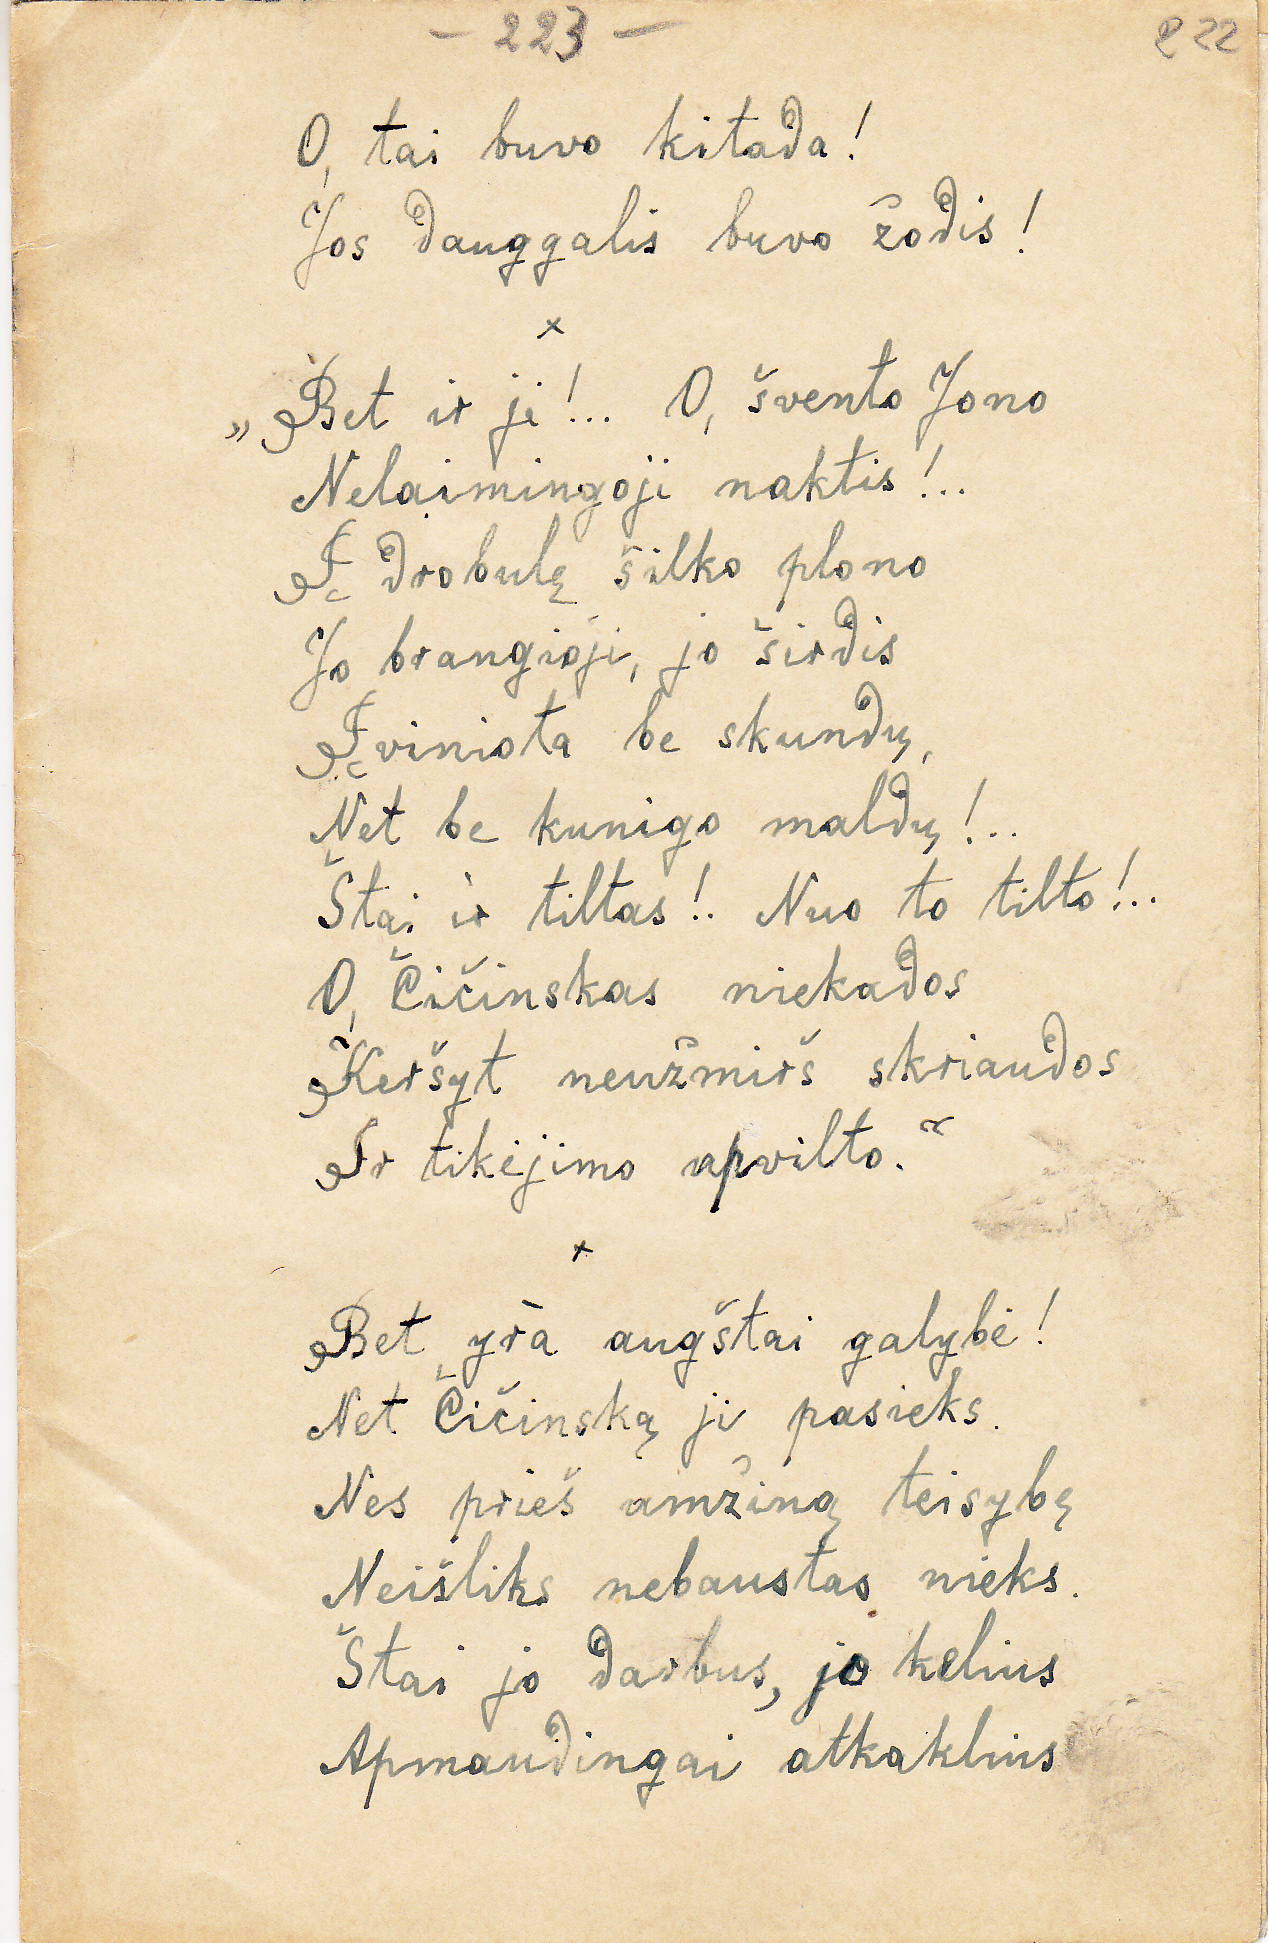 - 223 -
222
O, tai buvo kitada!
Jos dauggalis buvo žodis!
x
„Bet ir ji!... O, švento Jono
Nelaimingoji naktis!...
Į drobulę šilko plono
Jo brangioji, jo širdis
Įviniota be skundų,
Net be kunigo maldų!...
Štai ir tiltas!.. Nuo to tilto!...
O, Čičinskas niekados
Keršyt neužmirš skriaudos
Ir tikėjimo apvilto.“
x
Bet yra augštai galybė!
Net Čičinską ji pasieks.
Nes prieš amžiną teisybę
Neišliks nebaustas nieks.
Štai jo darbus, jo kelius
Apmaudingai atkaklius